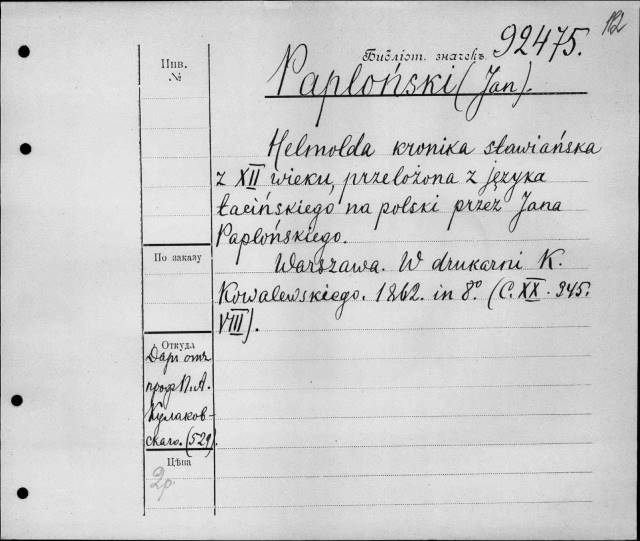 112
Библіот. значекъ 92475.
Инв.
№
Papłoński (Jan).
Helmolda kronika sławiańska
z XII wieku, przełożona z języka
łacińskiego na polski przez Jana
Papłońskiego.
Warszawa. W drukarni K.
Kowalewskiego. 1862. in 8º. (C. XX. 345.
VIII).
По заказу
Откуда
Даръ отъ
проф. П. А.
Кулаков-
скаго. (529).
Цѣна
2р.